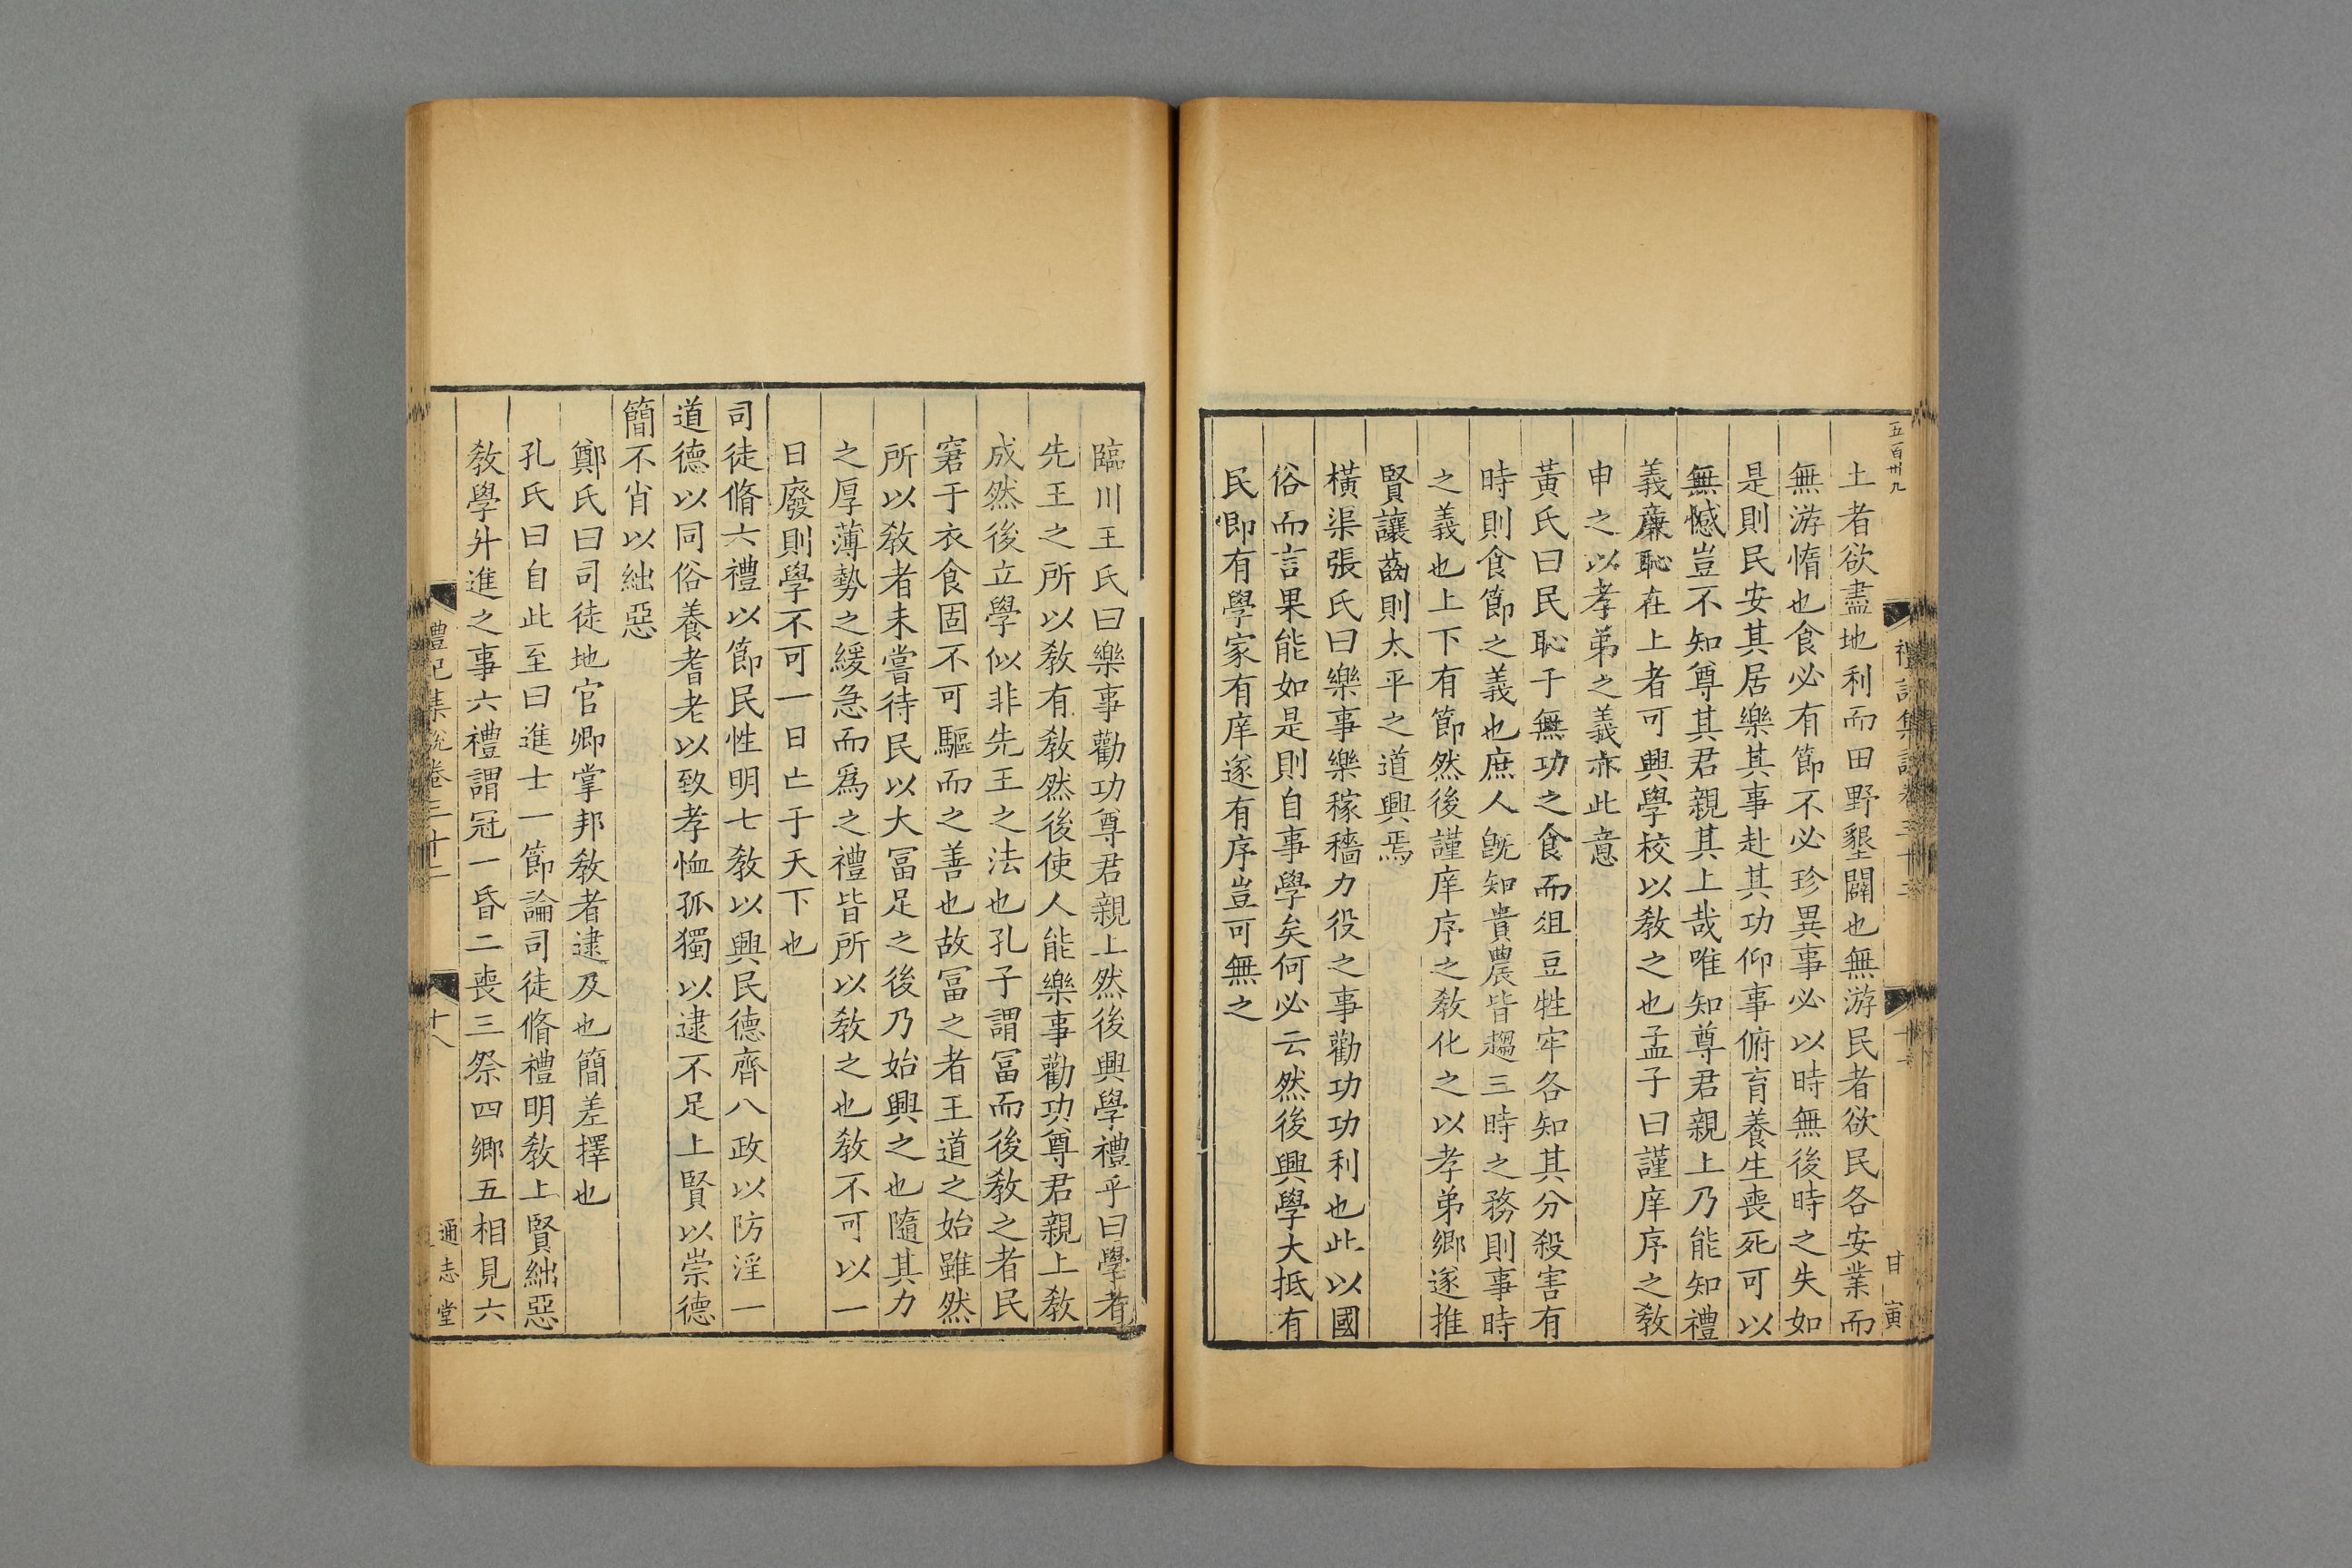 五百卅九
土者欲盡地利而田野墾闢也無游民者欲民各安業而
無游惰也食必有節不必珍異事必以時無後時之失如
是則民安其居樂其事赴其功仰事俯育養生喪死可以
無憾豈不知尊其君親其上哉唯知尊君親上乃能知禮
義廉恥在上者可興學校以敎之也孟子曰謹庠序之敎
申之以孝弟之義亦此意
黃氏曰民恥于無功之食而俎豆牲牢各知其分殺害有
時則食節之義也庶人旣知貴農皆趨三時之務則事時
之義也上下有節然後謹庠序之敎化之以孝弟鄉遂推
賢讓齒則太平之道興焉
橫渠張氏曰樂事樂稼穡力役之事勸功功利也此以國
俗而言果能如是則自事學矣何必云然後興學大抵有
民卽有學家有庠遂有序豈可無之
甘寅
臨川王氏曰樂事勸功尊君親上然後興學禮乎曰學者
先王之所以敎有敎然後使人能樂事勸功尊君親上敎
成然後立學似非先王之法也孔子謂冨而後敎之者民
窘于衣食固不可驅而之善也故冨之者王道之始雖然
所以敎者未嘗待民以大冨足之後乃始興之也隨其力
之厚薄勢之緩急而爲之禮皆所以敎之也敎不可以一
日廢則學不可一日亡于天下也
司徒脩六禮以節民性明七敎以興民德齊八政以防淫一
道德以同俗養耆老以致孝恤孤獨以逮不足上賢以崇德
簡不肖以絀惡
鄭氏曰司徒地官卿掌邦敎者逮及也簡差擇也
孔氏曰自此至曰進士一節論司徒脩禮明敎上賢絀惡
敎學升進之事六禮謂冠一昏二喪三祭四鄉五相見六
禮記集說卷三十二
十八
通志堂